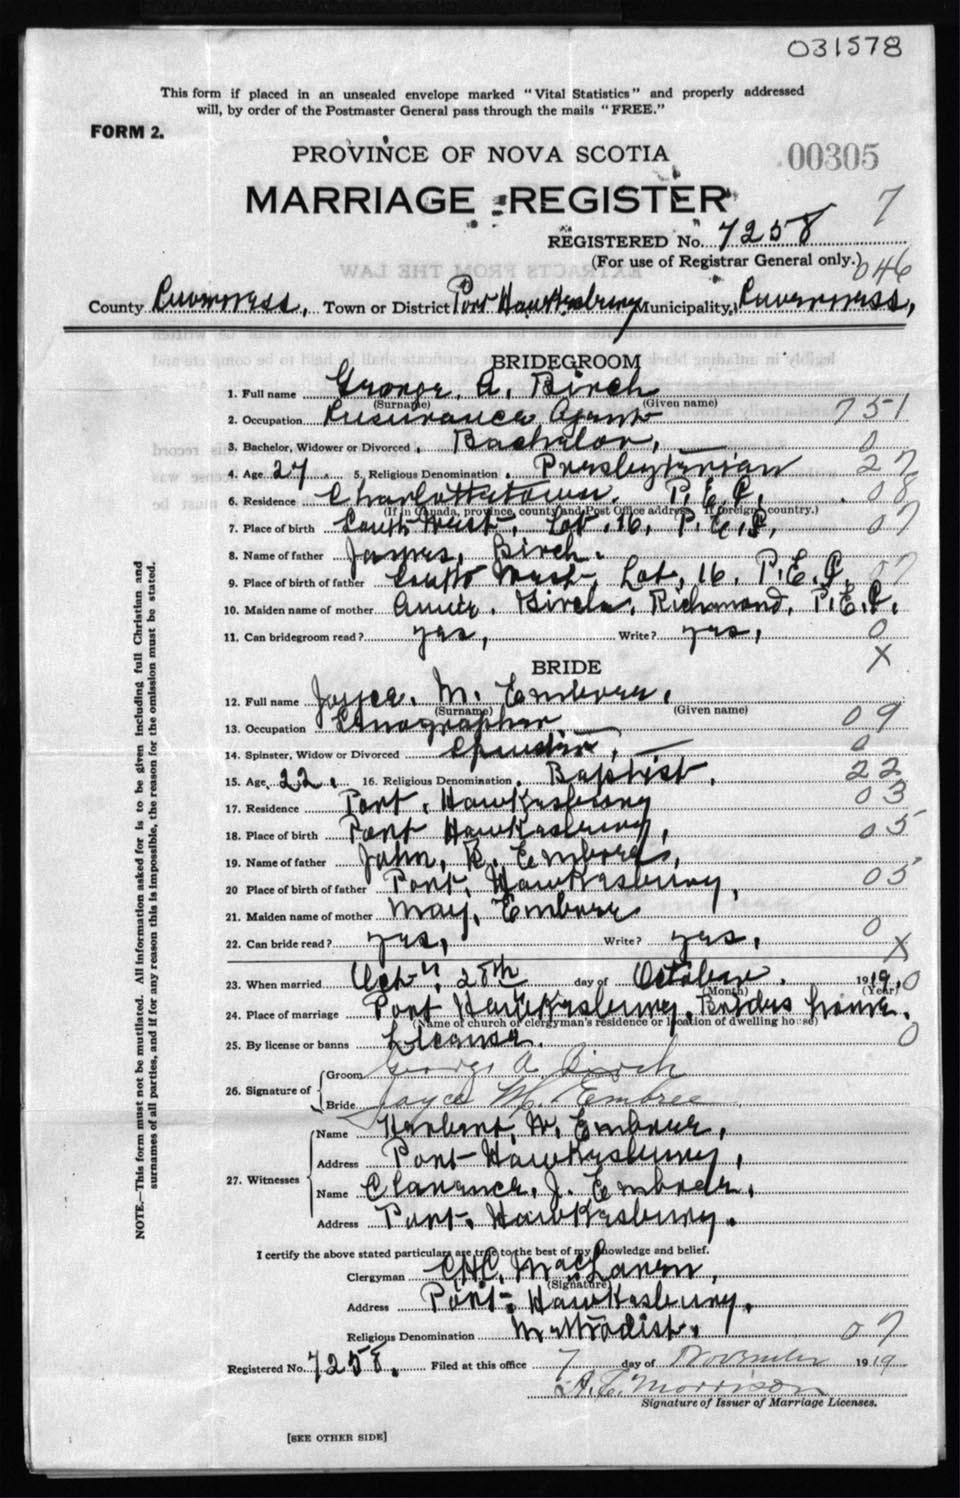 031578
This form if placed in an unsealed envelope marked "Vital Statistics" and properly addressed
will, by order of the Postmaster General pass through the mails "FREE."
FORM 2.
PROVINCE OF NOVA SCOTIA
00305
MARRIAGE REGISTER
7
REGISTERED No. 7258
(For use of Registrar General only.)
046
County Inverness, Town or District Port Hawkesbury Municipality, Inverness,
BRIDEGROOM
1. Full name George. A. Birch
(Surname) (Given name)
2. Occupation Insurance Agent 751
3. Bachelor, Widower or Divorced, Bachelor, 0
4. Age 27. 5. Religious Denomination, Presbyterian 27
6. Residence Charlottetown. P.E.I, 08
(If in Canada, province, county and Post Office address. If foreign, country.)
7. Place of birth South West, Lot, 16, P.E.I, 07
8. Name of father James, Birch.
9. Place of birth of father South West, Lot, 16. P.E.I. 07
10. Maiden name of mother Annie. Birch, Richmond, P.E.I.
11. Can bridegroom read? yes, Write? yes, 0
X
BRIDE
12. Full name Joyce. M. Embree,
(Surname) (Given name)
13. Occupation Stenographer 09
14. Spinster, Widow or Divorced Spinster, 0
15. Age 22. 16. Religious Denomination, Baptist. 22
17. Residence Port, Hawkesbury 03
18. Place of birth Port Hawkesbury, 05
19. Name of father John, Embree,
20 Place of birth of father Port, Hawkesbury, 05
21. Maiden name of mother May, Embree
22. Can bride read? yes, Write? yes, 0
X
23. When married 28th day of October. 1919. 0
(Month) (Year)
24. Place of marriage Port Hawkesbury, Brides home.
(Name of church or clergyman's residence or location of dwelling house)
25. By license or banns License. 0
26. Signature of
Groom George A Birch
Bride Joyce M. Embree
27. Witnesses
Name Herbert, W, Embree,
Address Port Hawkesbury,
Name Clarence, J. Embree,
Address Port, Hawkesbury.
I certify the above stated particulars are true to the best of my knowledge and belief.
Clergyman MacLaren,
(Signature)
Address Port, Hawkesbury.
Religious Denomination Methodist. 07
Registered No. 7258. Filed at this office 7 day of November 1919
A.E. Morrison
Signature of Issuer of Marriage Licenses.
[SEE OTHER SIDE]
NOTE.—This form must not be mutilated. All information asked for is to be given including full Christian and
surnames of all parties, and if for any reason this is impossible, the reason for the omission must be stated.